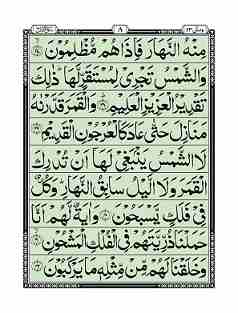 مِنْهُ النَّهَارَ فَاِذَا هُمْ مُّظْلِمُوْنَ ﴿۳۷﴾
وَالشَّمْسُ تَجْرِیْ لِمُسْتَقَرٍّ لَّهَا ذٰلِكَ
تَقْدِیْرُ الْعَزِیْزِ الْعَلِیْمِ ﴿۳۸﴾ وَالْقَمَرَ قَدَّرْنٰهُ
مَنَازِلَ حَتّٰی عَادَ كَالْعُرْجُوْنِ الْقَدِیْمِ ﴿۳۹﴾
لَا الشَّمْسُ یَنْۢبَغِیْ لَهَاۤ اَنْ تُدْرِكَ
الْقَمَرَ وَلَا الَّیْلُ سَابِقُ النَّهَارِ وَكُلٌّ
فِیْ فَلَكٍ یَّسْبَحُوْنَ ﴿۴۰﴾ وَاٰیَةٌ لَّهُمْ اَنَّا
حَمَلْنَا ذُرِّیَّتَهُمْ فِی الْفُلْكِ الْمَشْحُوْنِ ﴿۴۱﴾
وَخَلَقْنَا لَهُمْ مِّنْ مِّثْلِهٖ مَا یَرْكَبُوْنَ ﴿۴۲﴾